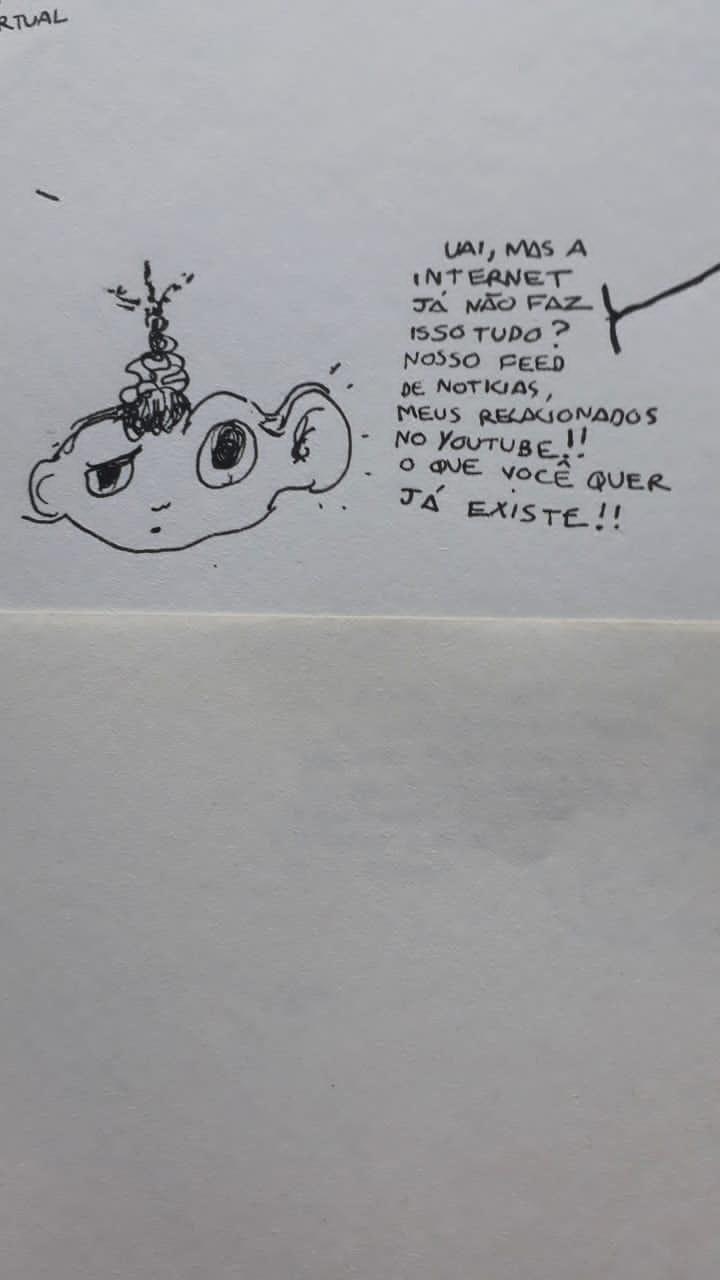 RTUAL
UAI, MAS A
INTERNET
JÁ NÃO FAZ
ISSO TUDO?
NOSSO FEED
DE NOTICIAS,
MEUS RELACIONADOS
NO YOUTUBE!!
O QUE VOCÊ QUER
JÁ EXISTE!!